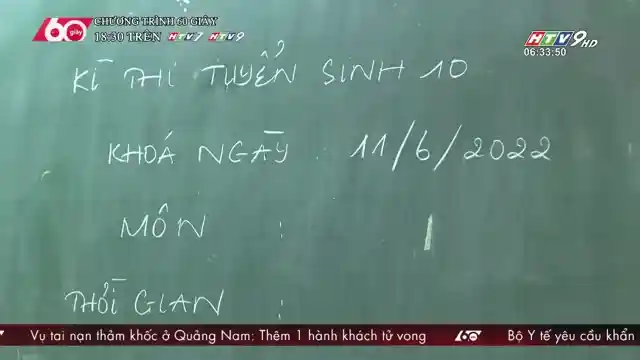 60 giây
CHƯƠNG TRÌNH 60 GIÂY
18:30 TRÊN HTV7 HTV9
HTV9 HD
06:33:50
KÌ THI TUYỂN SINH 10
KHOÁ NGÀY : 11/6/2022
MÔN :
THỜI GIAN :
Vụ tai nạn thảm khốc ở Quảng Nam: Thêm 1 hành khách tử vong
60
Bộ Y tế yêu cầu khẩn